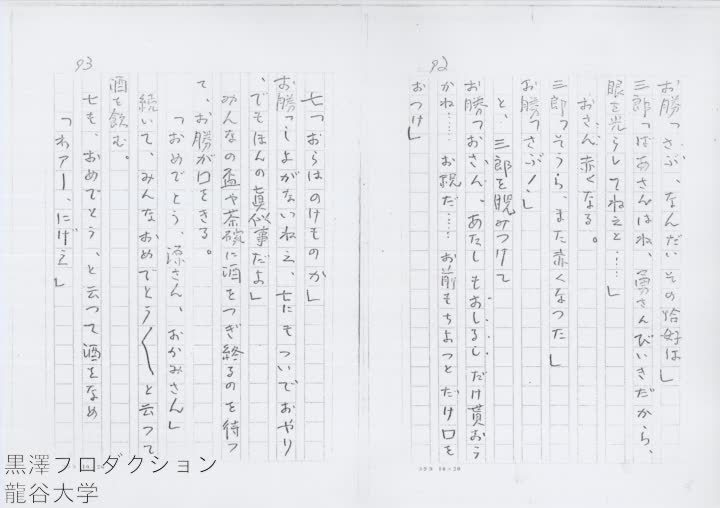 92
お勝「さぶ、なんだいその恰好は」
三郎「ばあさんはね、勇さんびいきだから、
眼を光らしてねえと……」
おさん、赤くなる。
三郎「そうら、また赤くなつた」
お勝「さぶ！」
と、三郎を睨みつけて
お勝「おさん、あたしもおしるしだけ貰おう
かね……お祝だ……お前もちよつとだけ口を
おつけ」
93
七「おらはのけものか」
お勝「しよがないねえ、七にもついでおやり
、でもほんの真似事だよ」
みんなの盃や茶碗に酒をつぎ終るのを待つ
て、お勝が口をきる。
「おめでとう、源さん、おかみさん」
続いて、みんなおめでとう〱と云つて
酒を飲む。
七も、おめでとう、と云つて酒をなめ
「わアー、にげえ」
コクヨ 16×20
16×20
黒澤プロダクション
龍谷大学